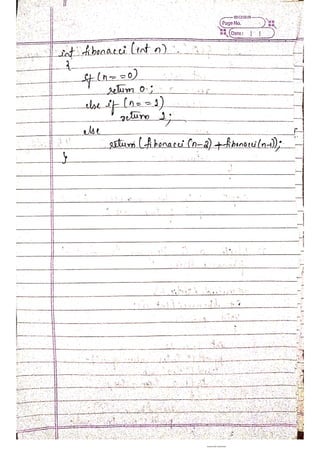 Page No.
Date: | |
int fibonacci (int n)
{
if (n==0)
return 0;
else if (n==1)
return 1;
else
return (fibonacci (n-2) + fibonacci (n-1));
}